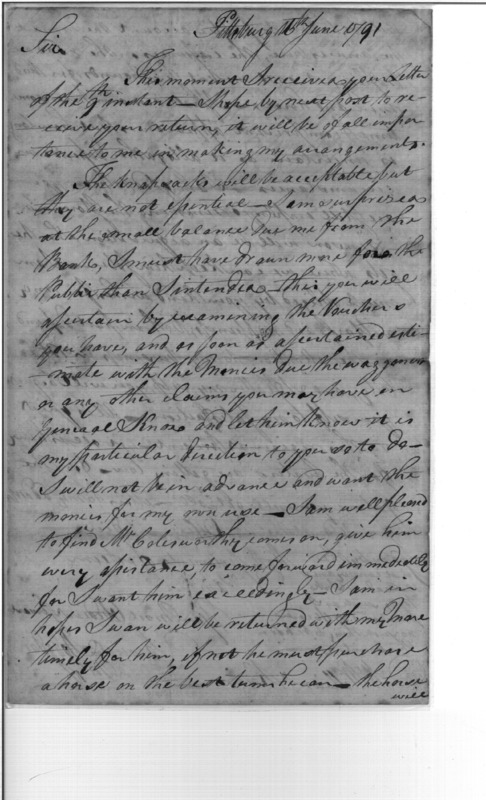 Pittsburg 16th June 1791
Sir
This moment I received your Letter
of the 9th instant — I hope by next post to re-
ceive your return, it will be of all impor
tance to me in making my arrangements.
The Knapsacks will be acceptable but
they are not essential — I am surprised
at the small balance due me from the
Bank, I must have drawn more for the
Public than I intended — this you will
ascertain by examining the Vouchers
you have, and as soon as ascertained esti-
mate with the Monies due the waggoners
or any other claims you may have on
General Knox and let him know it is
my particular direction to you so to do —
I will not be in advance and want the
monies for my own use — I am well pleased
to find Mr. comes on, give him
every assistance to come forward immediately
for I want him exceedingly — I am in
hopes Swan will be returned with my Mare
timely for him, if not he must purchase
a horse on the best terms he can — the horse
will